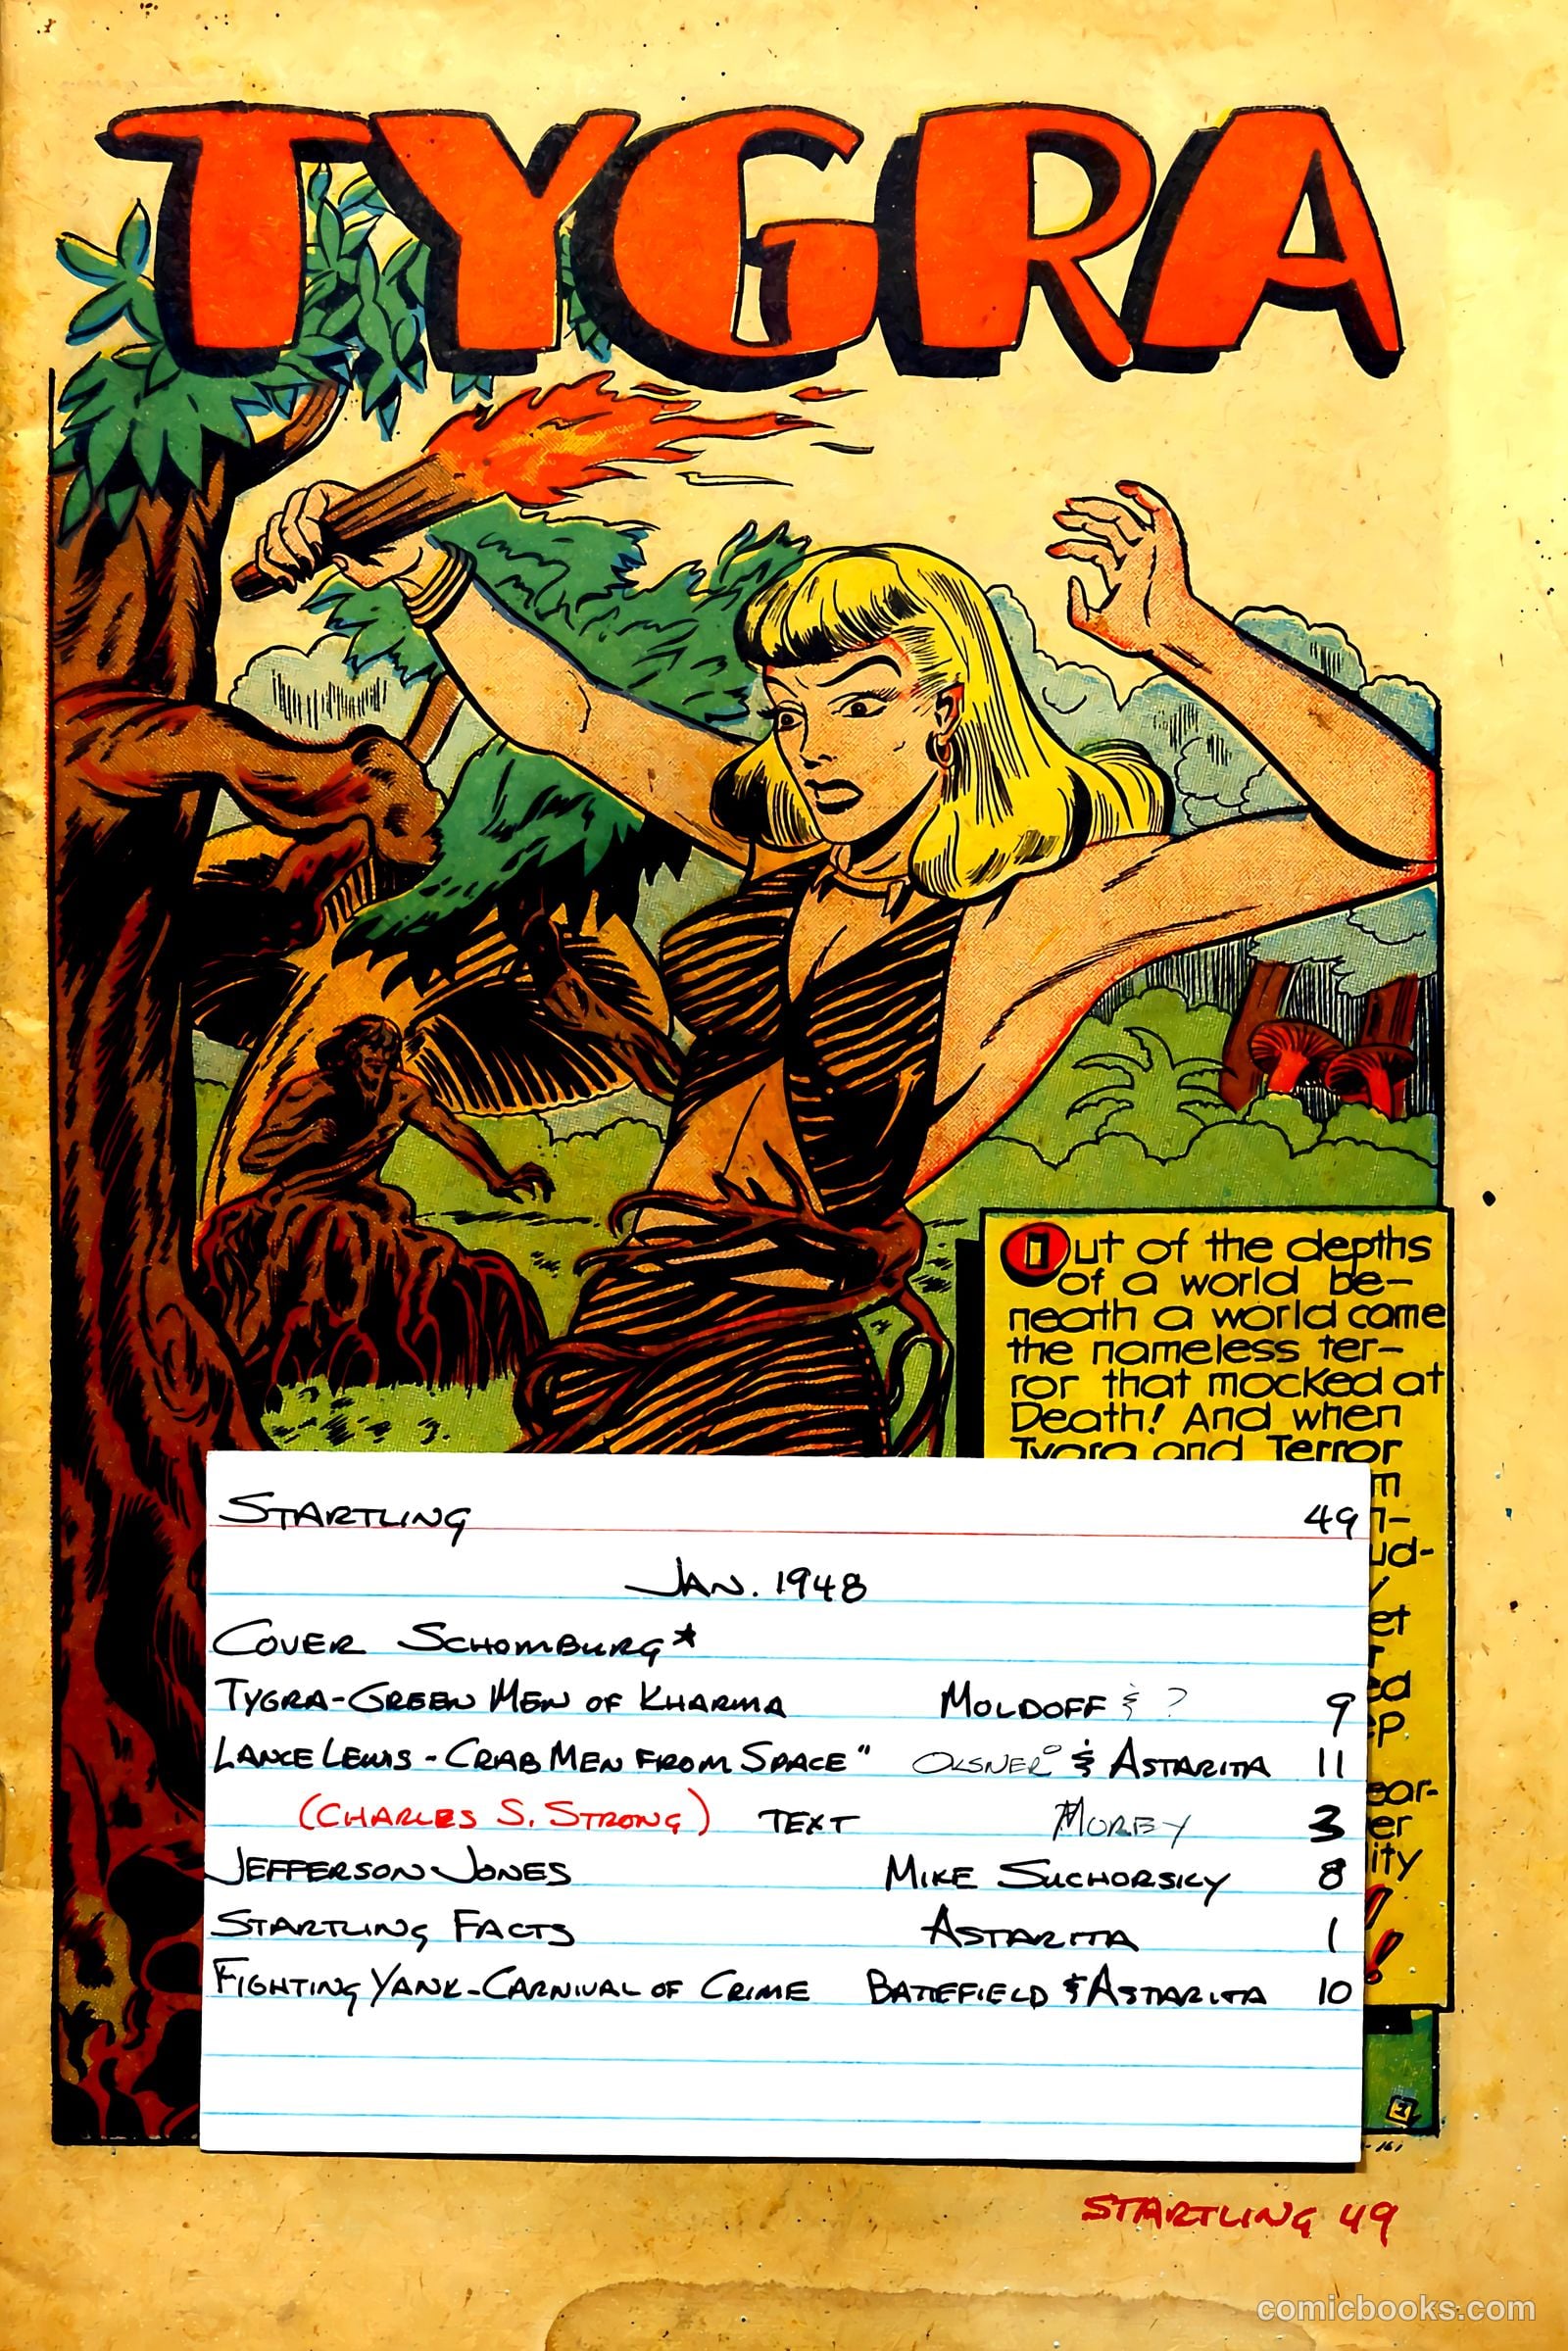 TYGRA
Out of the depths
of a world be-
neath a world came
the nameless ter-
ror that mocked at
Death! And when
Tygra and Terror
m
n-
ud-
y
et
r
ed
ep
ear-
er
lity
!
!
STARTLING 49
JAN. 1948
COVER SCHOMBURG*
TYGRA-GREEN MEN OF KHARMA MOLDOFF & ? 9
LANCE LEWIS - CRAB MEN FROM SPACE" OKSNER° & ASTARITA 11
(CHARLES S. STRONG) TEXT MOREY 3
JEFFERSON JONES MIKE SUCHORSKY 8
STARTLING FACTS ASTARITA 1
FIGHTING YANK-CARNIVAL OF CRIME BATTEFIELD & ASTARITA 10
1
-161
STARTLING 49
comicbooks.com